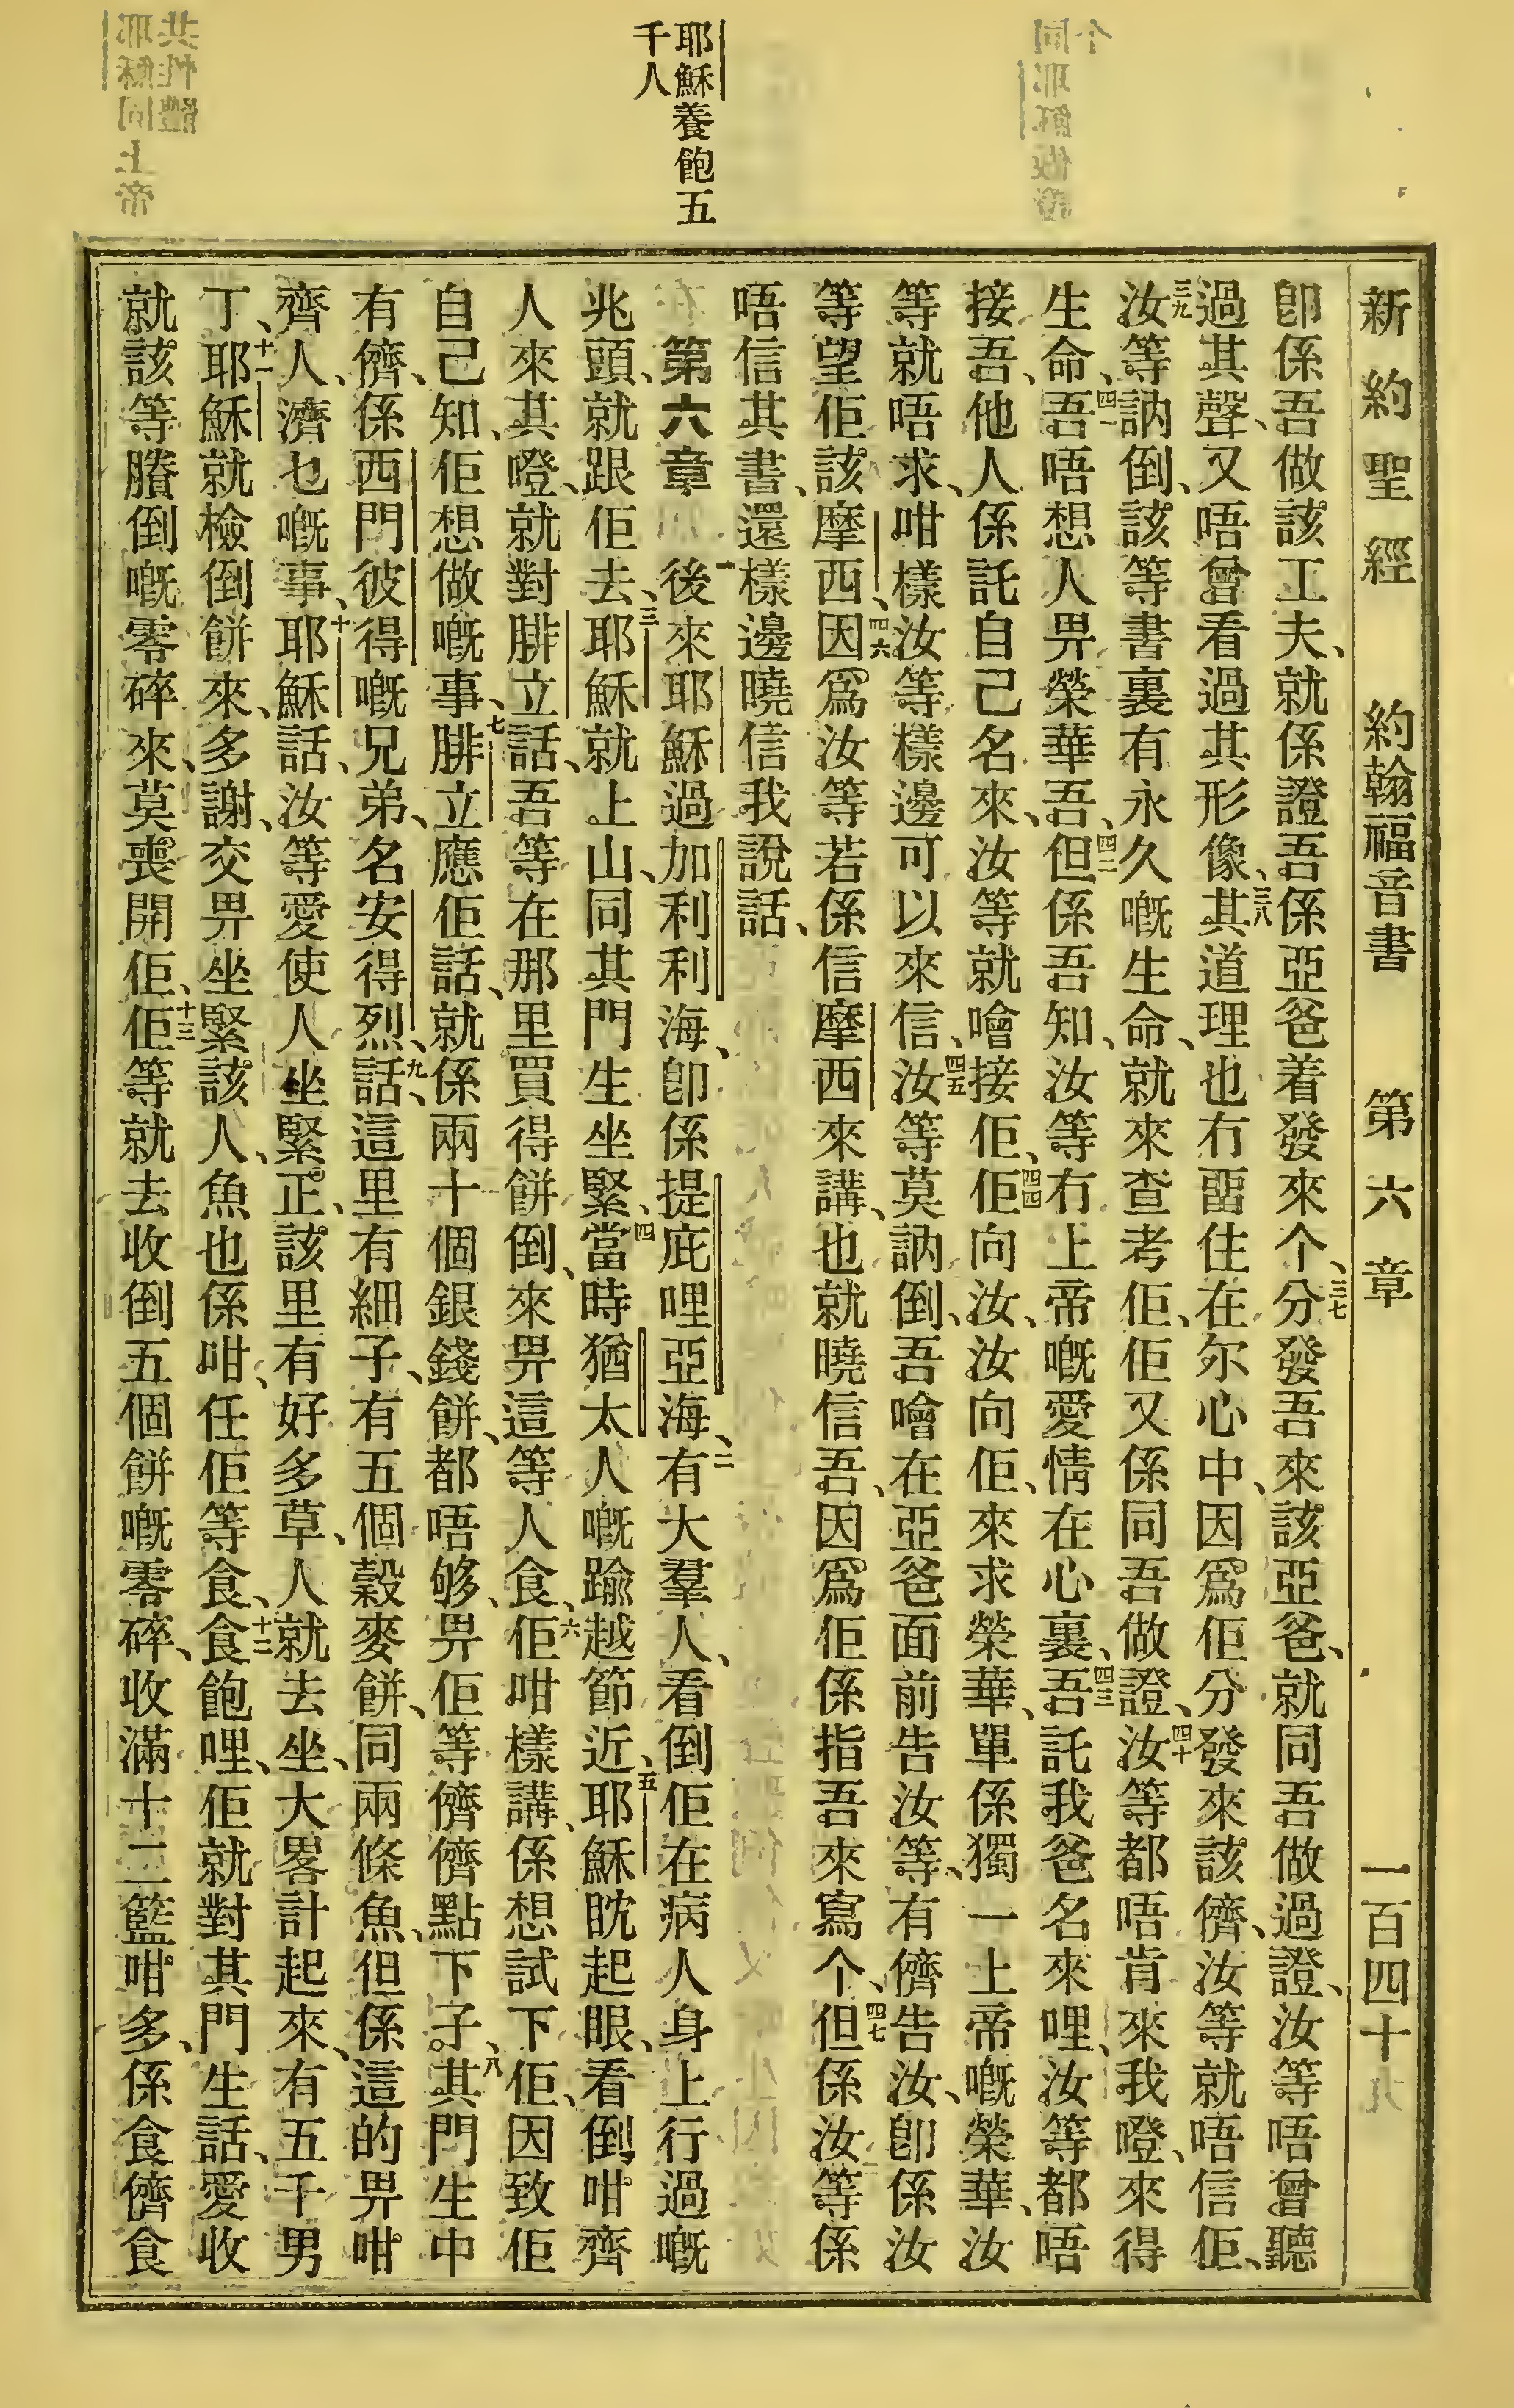 新約聖經 約翰福音書 第六章 一百四十九
耶穌養飽五
千人
卽係吾做該工夫、就係證吾係亞爸着發來个、三七分發吾來該亞爸、就同吾做過證、汝等唔曾聽
過其聲、又唔曾看過其形像、三八其道理也冇畱住在尔心中、因爲佢分發來該儕、汝等就唔信佢、
三九汝等訥倒、該等書裏有永久嘅生命、就來查考佢、佢又係同吾做證、四十汝等都唔肯來我嶝、來得
生命、四一吾唔想人畀榮華吾、四二但係吾知、汝等冇上帝嘅愛情在心裏、四三吾託我爸名來哩、汝等都唔
接吾、他人係託自己名來、汝等就噲接佢、四四佢向汝、汝向佢、來求榮華、單係獨一上帝嘅榮華、汝
等就唔求、咁樣汝等樣邊可以來信、四五汝等莫訥倒、吾噲在亞爸面前告汝等、有儕告汝、卽係汝
等望佢該摩西、四六因爲汝等若係信摩西來講、也就曉信吾、因爲佢係指吾來寫个、四七但係汝等係
唔信其書、還樣邊曉信我說話、
第六章 一後來耶穌過加利利海、卽係提庇哩亞海、二有大羣人、看倒佢在病人身上行過嘅
兆頭、就跟佢去、三耶穌就上山、同其門生坐緊、四當時猶太人嘅踰越節近、五耶穌眈起眼、看倒咁齊
人來其嶝、就對腓立話、吾等在那里買得餅倒、來畀這等人食、六佢咁樣講、係想試下佢、因致佢
自己知、佢想做嘅事、七腓立應佢話、就係兩十個銀錢餅、都唔够、畀佢等儕儕點下子、八其門生中
有儕、係西門彼得嘅兄弟、名安得烈、話、九這里有細子、有五個穀麥餅、同兩條魚、但係這的畀咁
齊人、濟乜嘅事、十耶穌話、汝等愛使人坐緊正、該里有好多草、人就去坐、大畧計起來、有五千男
丁、十一耶穌就檢倒餅來、多謝、交畀坐緊該人、魚也係咁、任佢等食、十二食飽哩、佢就對其門生話、愛收
就該等賸倒嘅零碎來、莫喪開佢、十三佢等就去收倒五個餅嘅零碎、收滿十二籃咁多、係食儕食